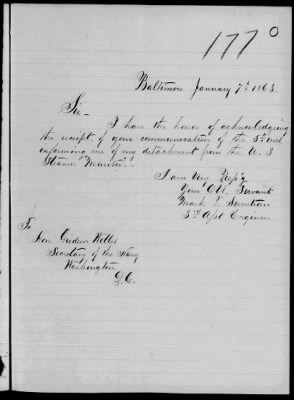 177 0
Baltimore January 7th 1863.
Sir—
I have the honor of acknowledging
the receipt of your communication of the 5th inst
informing me of my detachment from the U. S
Steamer "Monitor".
I am Very Resp'y
Your Obt. Servant
Mark T. Sunstrom
3rd Asst Engineer
To
Hon. Gideon Welles
Secretary of the Navy
Washington
D.C.